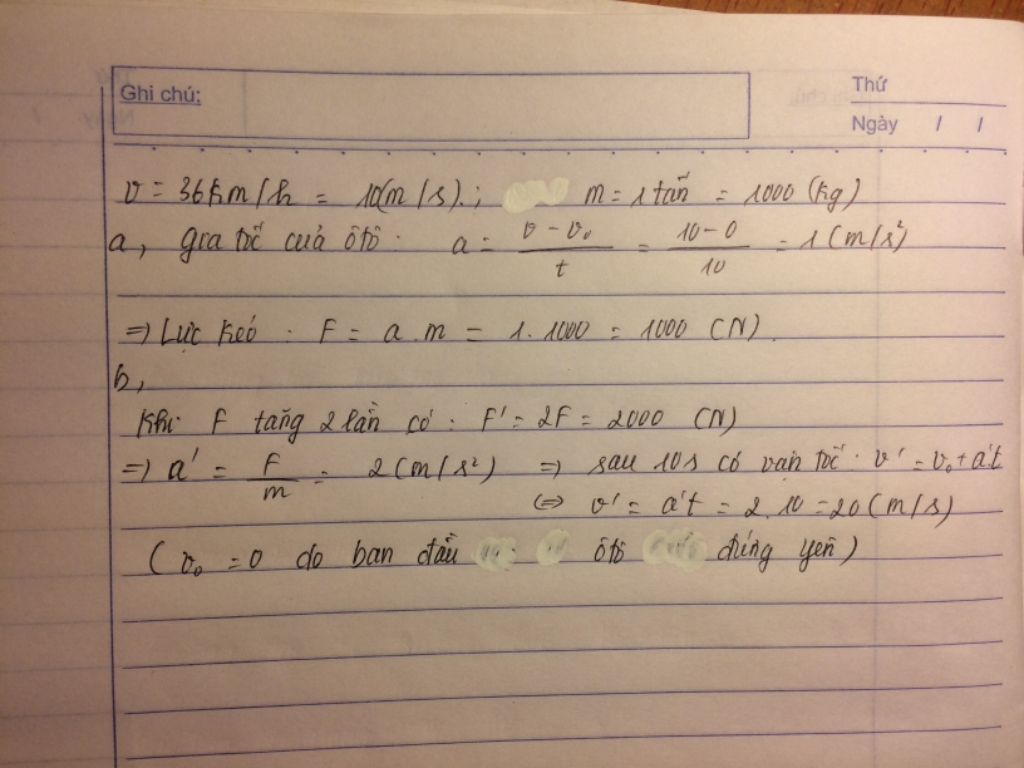 Ghi chú:
Thứ
Ngày / /
v = 36km/h = 10(m/s).; m = 1 tấn = 1000 (kg)
a, gia tốc của ôtô. a = \frac{v - v₀}{t} = \frac{10 - 0}{10} = 1 (m/s²)
=> Lực kéo : F = a.m = 1.1000 = 1000 (N).
b,
Khi F tăng 2 lần có : F' = 2F = 2000 (N)
=> a' = \frac{F}{m} = 2(m/s²) => sau 10s có vận tốc. v' = v₀ + a't
<=> v' = a't = 2.10 = 20(m/s)
(v₀ = 0 do ban đầu ôtô đứng yên)